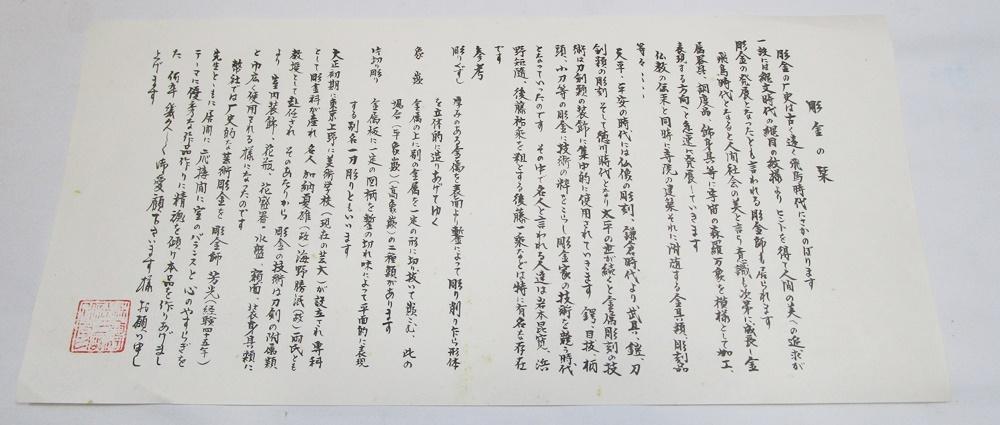 彫金の栞
彫金の歴史は古く遠く飛鳥時代にさかのぼります
一説には縄文時代の縄目の紋様よりヒントを得て人間の美への追求が
彫金の発展となったとも言われる彫金師も居られます
飛鳥時代となると人間社会の美と言う意識も次第に成長し金
属器具、調度品、飾身具等に宇宙の森羅万象を模様として加工、
表現する方向へと急速に発展していきます
仏教の伝来と同時に寺院の建築それに附随する金具類、彫刻品
等々‥‥
天平、平安の時代には仏像の彫刻、鎌倉時代より武具、鎧、刀
剣類の彫刻 そして徳川時代となり太平の世が続くと金属彫刻の技
術は刀剣類の装飾に集中的に使用されていきます 鍔、目抜、柄
頭、小刀等の彫金に技術の粋をこらし彫金家の技術を競う時代
となっていったのです その中で名人と言われる人達は岩本昆寛、浜
野矩随、後藤祐乗を祖とする後藤一乗などは特に有名な存在
です
参考
彫りくずし 厚みのある金属を表面より鏨によって彫り削りたら形体
を立体的に造りあげてゆく
象嵌 金属の上に別の金属を一定の形に切り抜いて嵌こむ、此の
場合(平象嵌)(高象嵌)の二種類があります
片切り彫り 金属板に一定の図柄を鏨の切れ味によって平面的に表現
する別名一刀彫りともいいます
大正初期に東京上野に美術学校(現在の芸大)が設立され 専科
として彫金科が産れ 名人 加納夏雄(故)海野勝珉(故)両氏とも
教授として赴任され そのあたりから 彫金の技術は刀剣の附属類
より 室内装飾、花瓶、花盛器、水盤、額面、装身具類に
と巾広く使用される様になったのです
弊社では歴史的な芸術彫金を 彫金師 芳光(経験四十五年)
先生とともに居間に 応接間に 室のバランスと心のやすらぎを
テーマに優秀な作品作りに精魂を傾り本品を作りあげまし
た 何卒 幾久しく御愛顧下さいます様 お願い申し
上げます